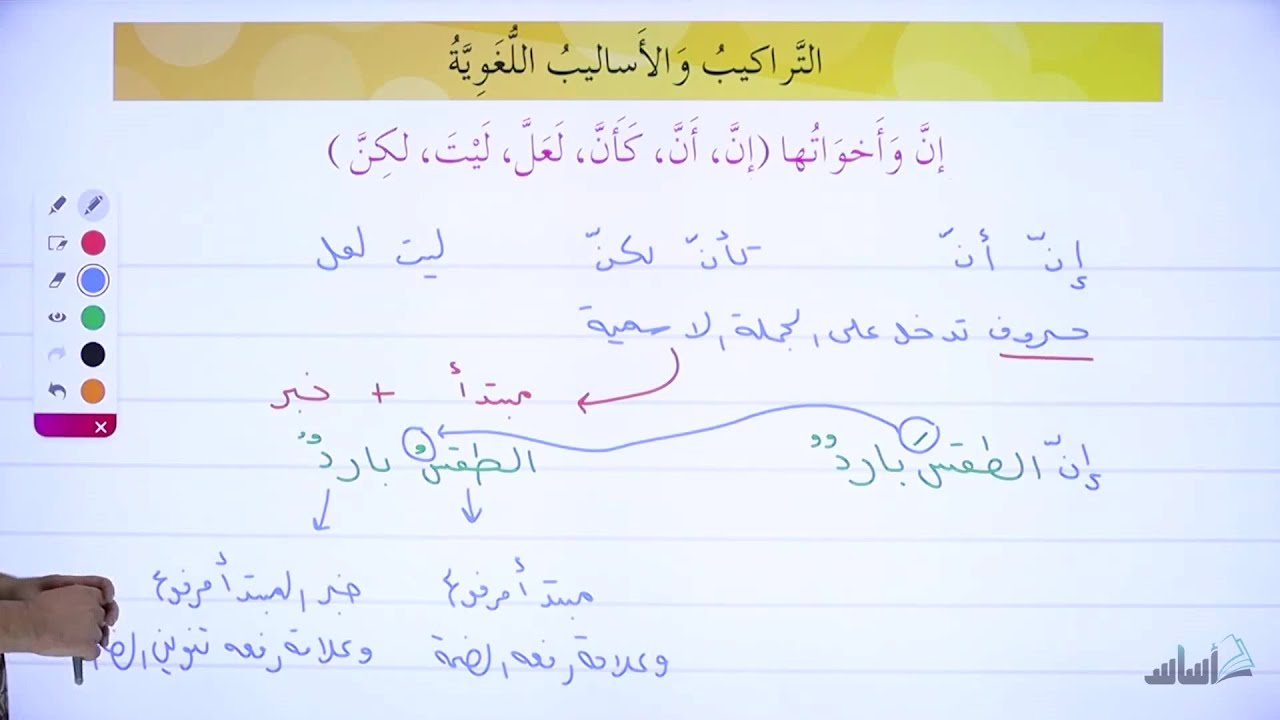 التَّراكيبُ وَالأَساليبُ اللُّغَوِيَّةُ
إنَّ وَأَخوَاتُها (إنَّ، أَنَّ، كَأَنَّ، لَعَلَّ، لَيْتَ، لكِنَّ)
إنّ أنّ كأنّ لكنّ ليت لعل
حروف تدخل على الجملة الاسمية
مبتدأ + خبر
إنّ الطقسَ باردٌ الطقسُ باردٌ
مبتدأ مرفوع خبر المبتدأ مرفوع
وعلامة رفعه الضمة وعلامة رفعه تنوين
أساس